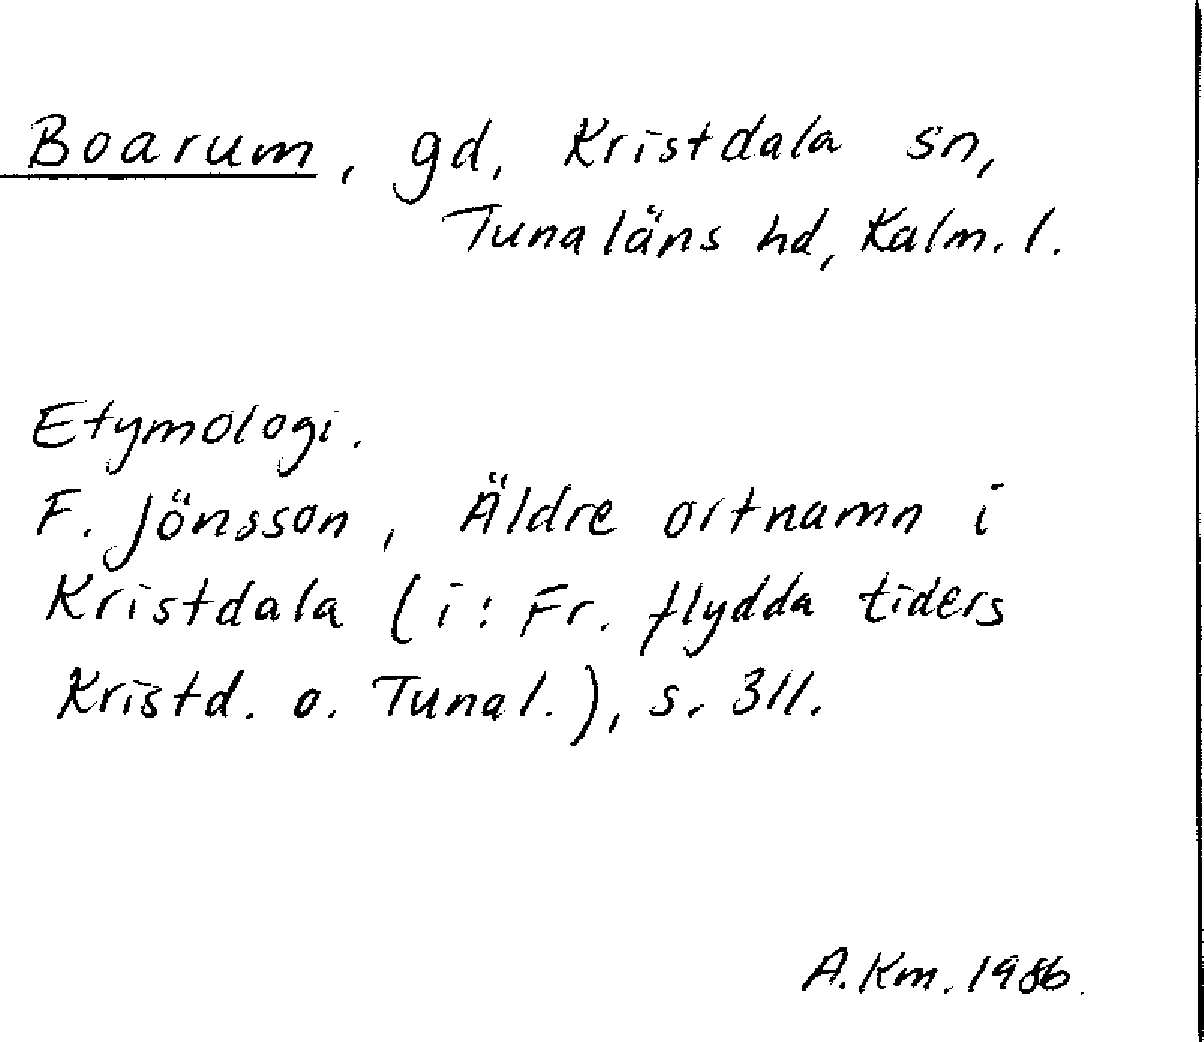 Boarum, gd, Kristdala sn,
Tunaläns hd, Kalm. l.
Etymologi.
F. Jönsson, Äldre ortnamn i
Kristdala (i: Fr. flydda tiders
Kristd. o. Tunal.), s. 311.
A. Km. 1986.